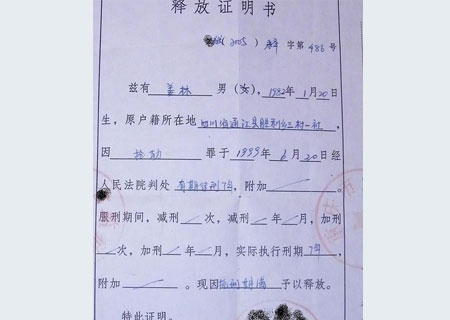 释放证明书
(2005) 字第486号
兹有 姜林 男(女), 1982年1月20日
生，原户籍所在地 四川省通江县胜利乡三村一社
因 抢劫 罪于1999年6月20日经
人民法院判处 有期徒刑7年，附加 。
服刑期间，减刑 次，减刑 年 月，加刑
次，加刑 年 月，实际执行刑期 7年
附加 。现因 服刑期满 予以释放。
特此证明。